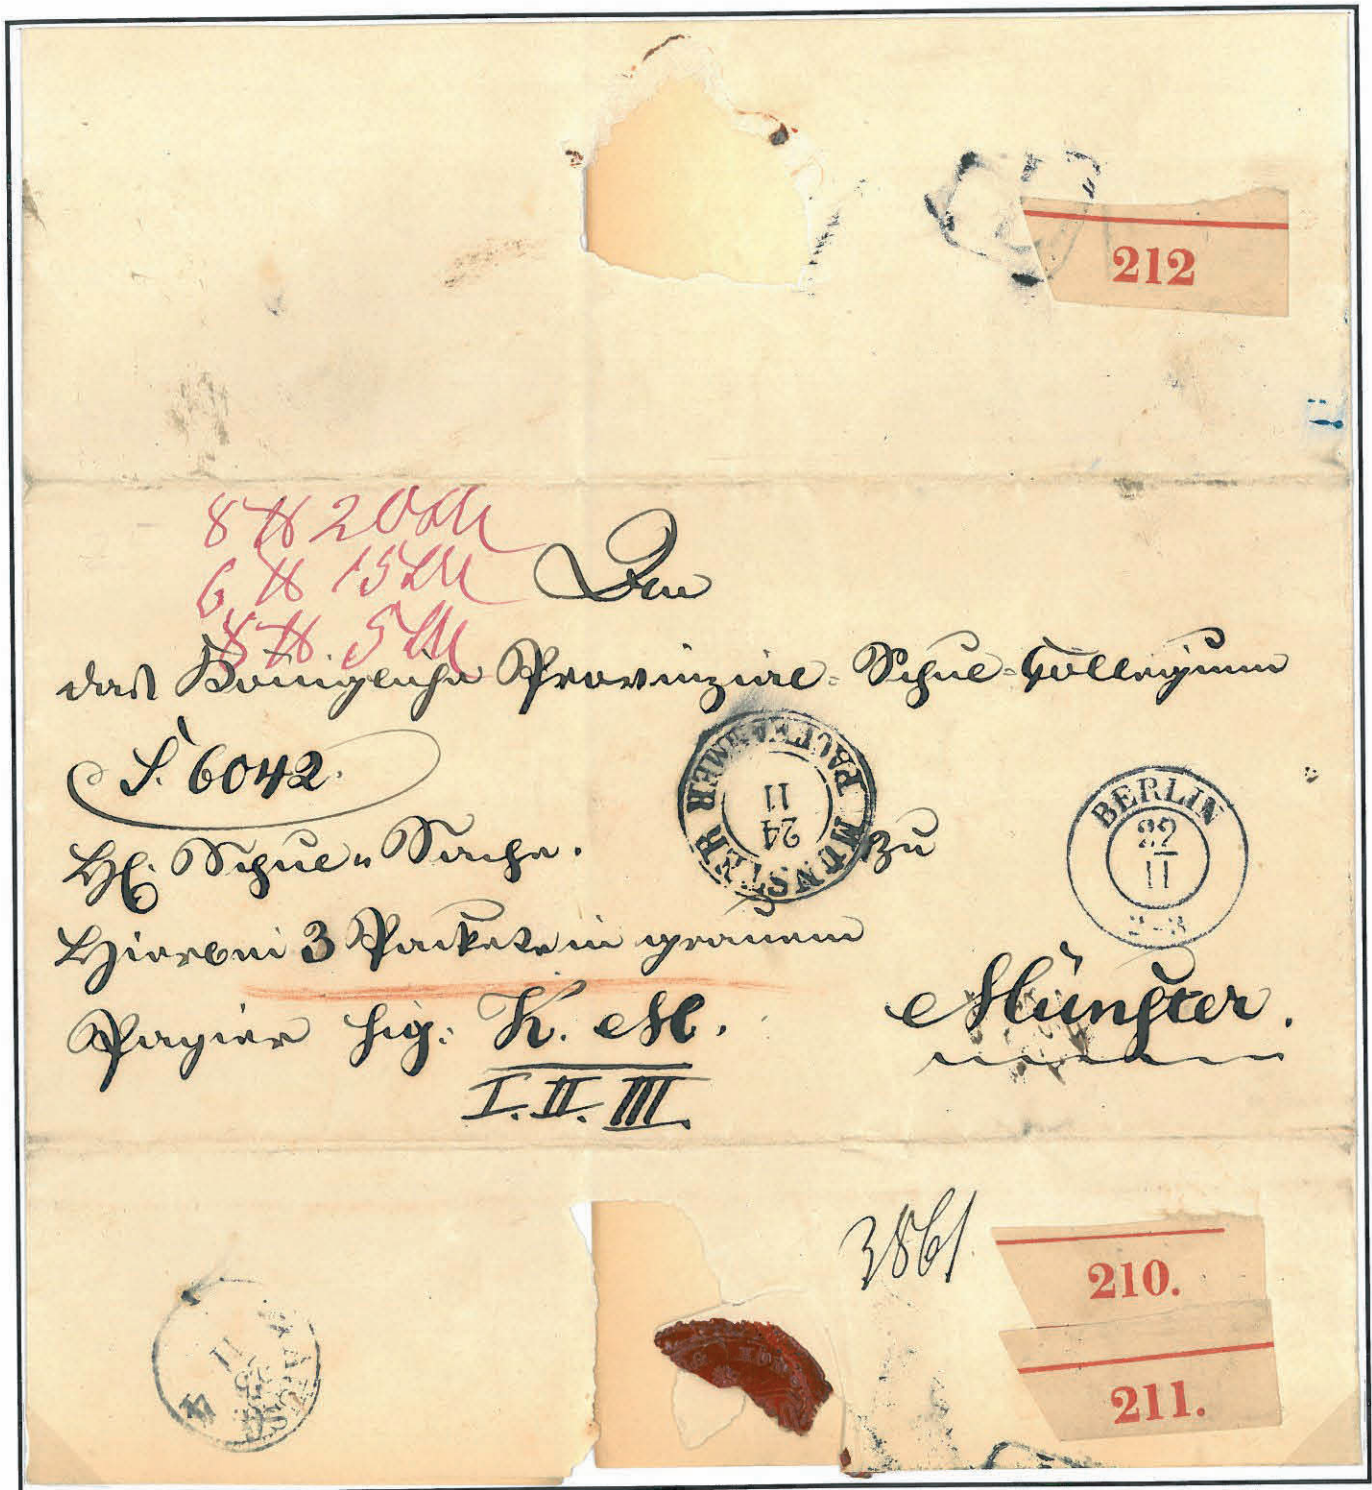 212
8 ℔ 20 Lth
6 ℔ 15 Lth
8 ℔ 5 Lth
An
das Königliche Provinzial-Schul-Collegium
S. 6042.
MÜNSTER PACKKAMMER
24
11
zu
BERLIN
22
11
2-3
H. Schul-Sache.
Hierbei 3 Packete in grauem
Papier sig: K. M.
I. II. III.
Münster.
3861
210.
211.
AUSG
11